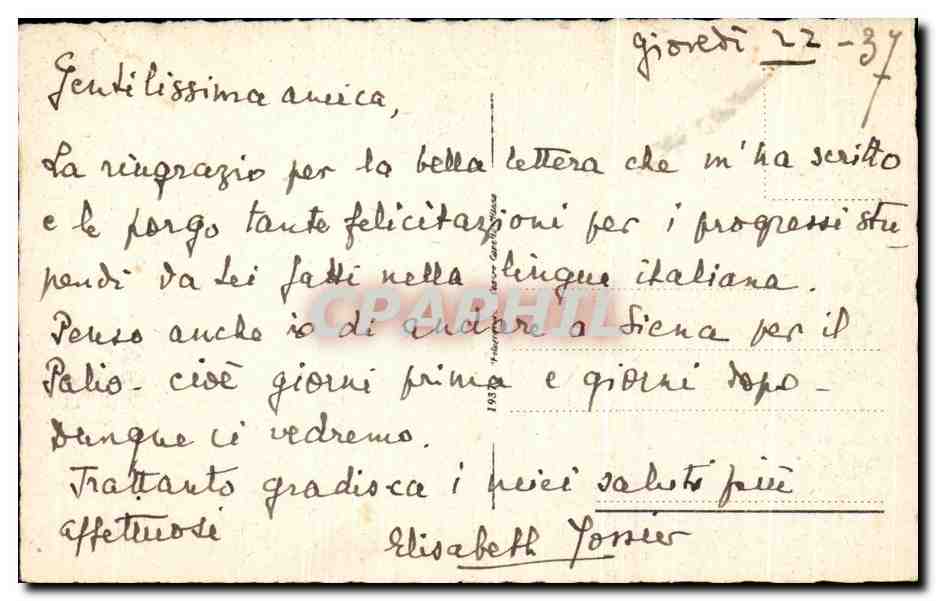 giovedì 22-37
Gentilissima amica,
La ringrazio per la bella lettera che m'ha scritto
e le porgo tante felicitazioni per i progressi stu-
pendi da Lei fatti nella lingua italiana.
Penso anche io di andare a Siena per il
Palio - cioè giorni prima e giorni dopo -
Dunque ci vedremo.
Frattanto gradisca i miei saluti più
affettuosi
Elisabeth
CPAPHIL
1937